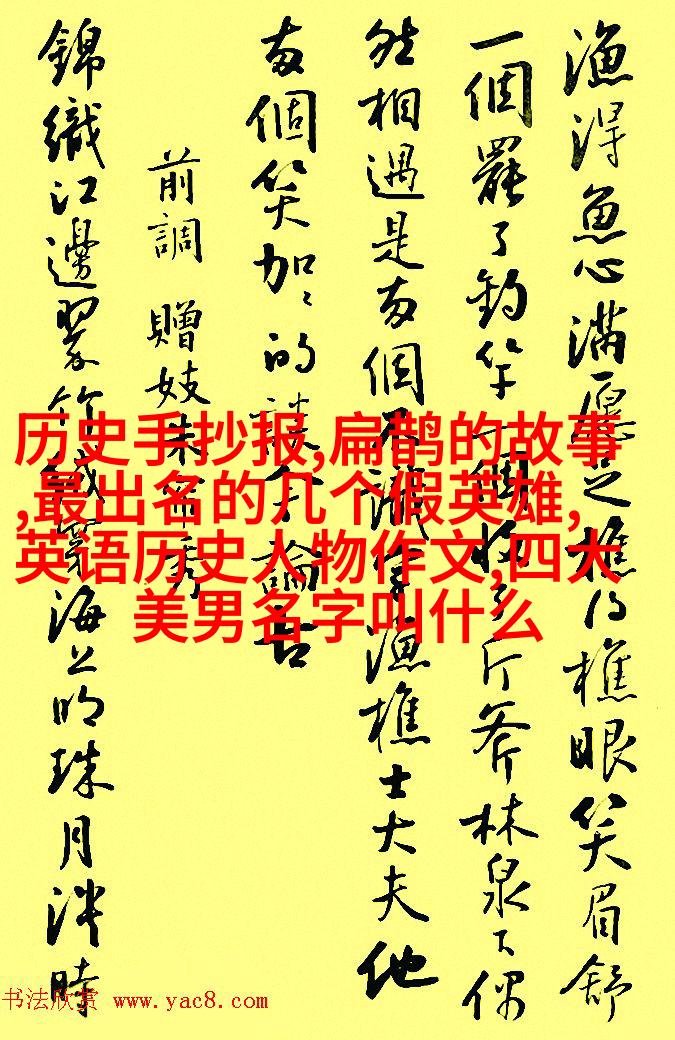 漁得魚心滿愿足樵得樵眼笑眉舒
一個罷了釣竿一個收了斤斧林泉下偶
然相遇是兩個不識字漁樵士大夫他
兩個笑加加的談今論古
前調 贈妓朱簾秀
錦織江邊翠竹絨穿海上明珠月淡時
历史手抄报,扁鹊的故事
,最出名的几个假英雄,
英语历史人物作文,四大
美男名字叫什么
书法欣赏 www.yac8.com